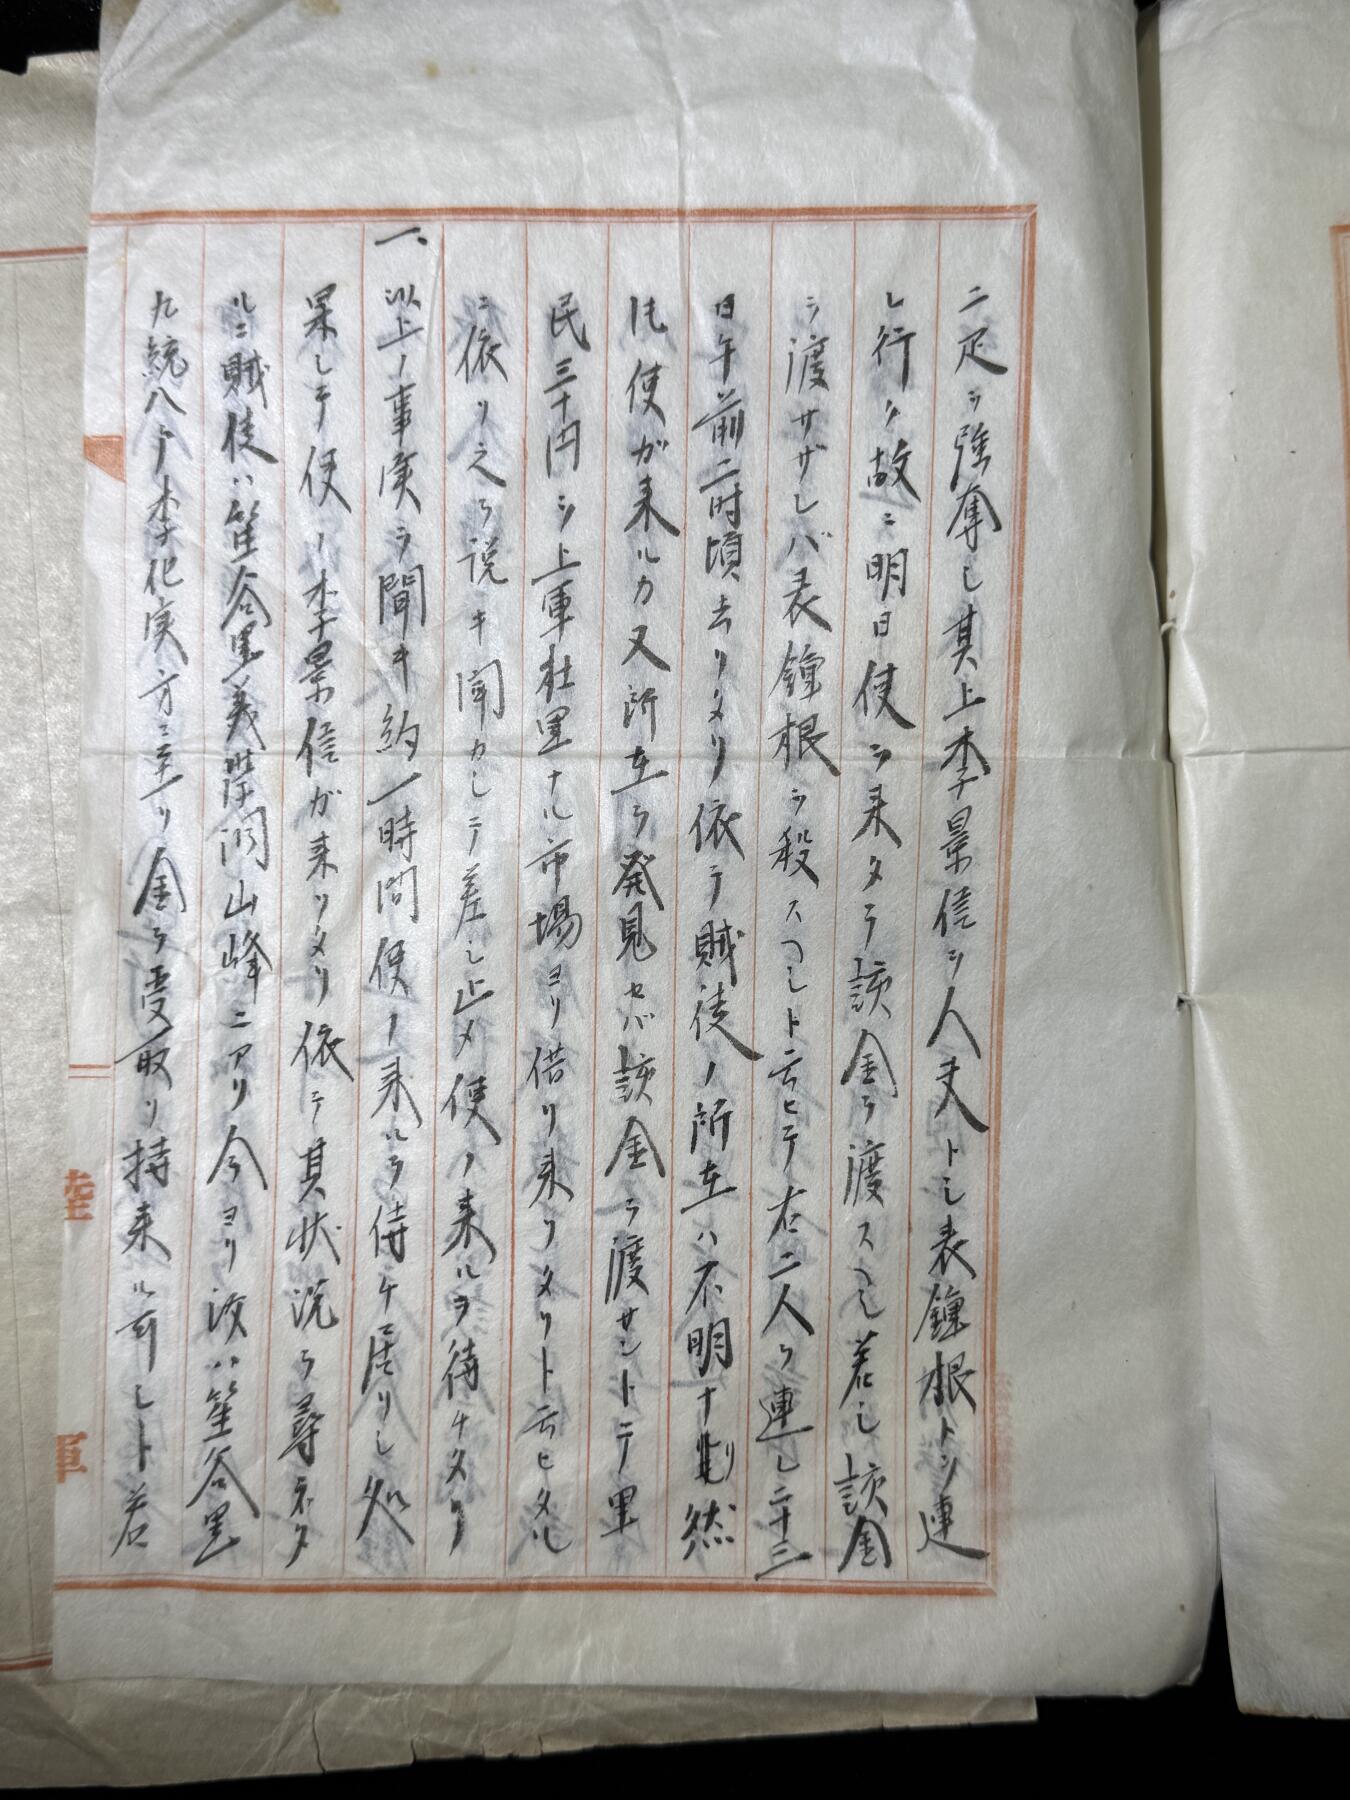 二足ヲ強奪シ其上李景信ヲ人夫トシ表鐘根トヲ連
レ行ク故ニ明日使ヲ来タラ該金ヲ渡スヘシ若シ該金
ヲ渡サザレバ表鐘根ヲ殺スヘシト云ヒテ右二人ヲ連レ二十三
日午前二時頃去リタリ依テ賊徒ノ所在ハ不明ナリ然
使ガ来ルカ又所在ヲ発見セバ該金ヲ渡サントテ里
民三十円ヲ上軍杜里ナル市場ヨリ借リ来リタリト云ヒタル
ニ依リ之ヲ説キ聞カシテ差シ止メ使ノ来ルヲ待チタリ
一、以上ノ事実ヲ聞キ約一時間使ノ来ルヲ待チ居リシ処
果シテ使ノ李景信ガ来リタリ依テ其状況ヲ尋ネタ
ルニ賊徒ハ笙谷里義 洞山峰ニアリ今ヨリ汝ハ笙谷里
九統八戸李化実方ニ至リ金ヲ受取リ持来ル可シト若
陸
軍